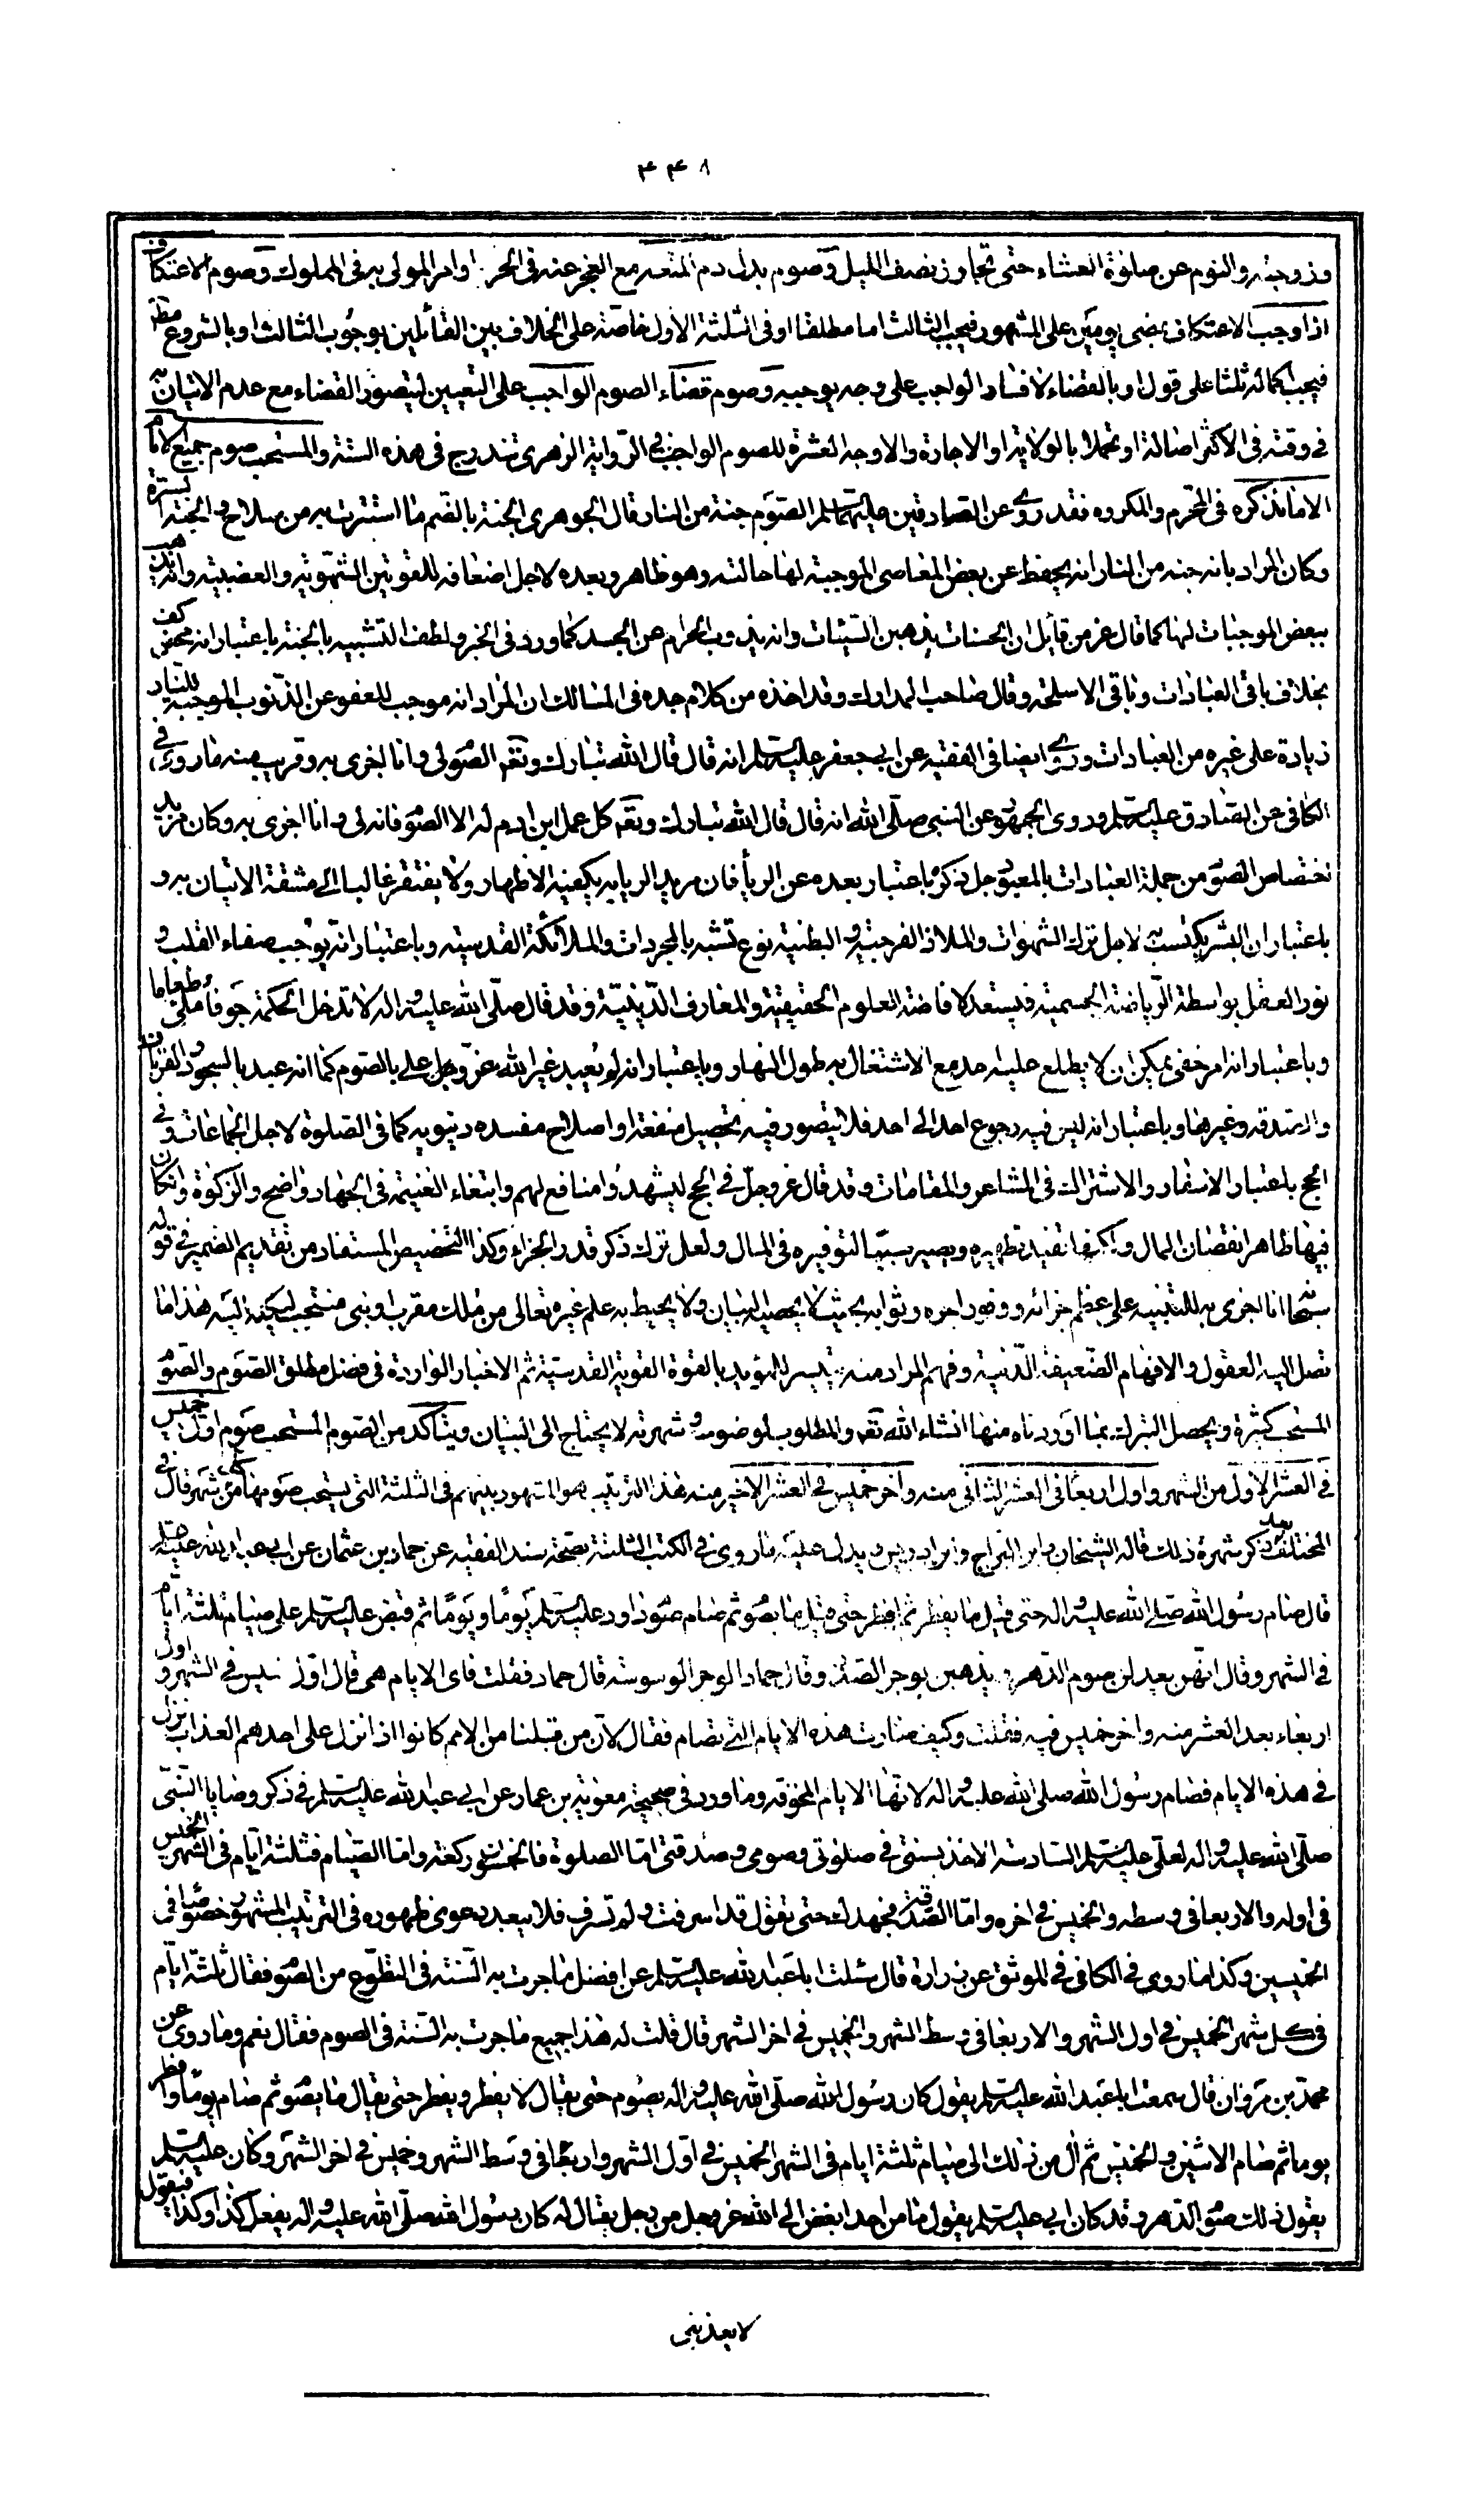 ۴۴۸
وزوجته والنوم عن صلوة العشاء حتى تجاوز نصف الليل وصوم بدل دم المتعه مع العجز عنه فى الحر او امر المولى به فى المملوك وصوم الاعتكاف
اذا وجب الاعتكاف بمضى يومين على المشهور فيجب الثالث اما مطلقا او فى الثلثة الاول خاصة على الخلاف بين القائلين بوجوب الثالث او بالشروع مطلقا
فيجب اكماله ثلثا على قول او بالقضاء لافساد الواجب على وجه يوجبه وصوم قضاء الصوم الواجب على التعيين ليتصور القضاء مع عدم الاتيان به
فى وقته فى الاكثر اصالة او تحملا بالولاية او الاجارة والاوجه العشرة للصوم الواجب فى الرواية الزهرى تندرج فى هذه الستة والمستحب صوم جميع الايام
الا ما نذكره فى المحرم والمكروه فقد روى عن الصادقين عليهما السلم الصوم جنة من النار قال الجوهرى الجنة بالضم ما استترت به من سلاح والجنة السترة
وكان المراد بانه جنه من النار انه يحفظ عن بعض المعاصى الموجبة لها حالته وهو ظاهر وبعده لاجل اضعافه للقوتين الشهوية والغضبية وانه يذهب
ببعض الموجبات لها كما قال عز من قائل ان الحسنات يذهبن السيئات وانه يذوب الحرام عن الجسد كما ورد فى الخبر ولطف التشبيه بالجنة باعتبار انه محض كف
بخلاف باقى العبادات وباقى الاسلحة وقال صاحب المدارك وقد اخذه من كلام جده فى المسالك ان المراد انه موجب للعفو عن الذنوب الموجبة للنار
زيادة على غيره من العبادات وروى ايضا فى الفقيه عن ابى جعفر عليه السلم انه قال قال الله تبارك وتعه الصوم لى وانا اجزى به وقريب منه ما روى فى
الكافى عن الصادق عليه السلم وروى الجمهور عن النبى صلى الله انه قال قال الله تبارك وتعه كل عمل ابن ادم له الا الصوم فانه لى وانا اجزى به وكان مزيد
اختصاص الصوم من جملة العبادات بالمعبود جل ذكره باعتبار بعده عن الريا فان مريد الريا به يكفيه الاظهار ولا يفتقر غالبا الى مشقة الاتيان به و
باعتبار ان البشر يكتسب به لاجل ترك الشهوات والملاذ الفرجية والبطنية نوع تشبه بالمجردات والملائكة القدسية وباعتبار انه يوجب صفاء القلب و
نور العقل بواسطة الرياضة الجسمية فيستعد لافاضة العلوم الحقيقية والمعارف الدينية وقد قال صلى الله عليه واله لا تدخل الحكمة جوفا ملئ طعاما
وباعتبار انه امر خفى يمكن ان لا يطلع عليه احد مع الاشتغال به طول النهار وباعتبار انه لم يعبد غير الله عز وجل على بالصوم كما انه عبد بالسجود والقربان
والتصدقه وغيرها وباعتبار انه ليس فيه رجوع احد الى احد فلا يتصور فيه تحصيل منفعة او اصلاح مفسده دنيويه كما فى الصلوة لاجل الجماعات وفى
الحج باعتبار الاسفار والاشتراك فى المشاعر والمقامات وقد قال عز وجل فى الحج ليشهدوا منافع لهم وابتغاء الغنيمة فى الجهاد واضح والزكوة وان كان
فيها ظاهرا نقصان المال ولكنها تفيد تطهيره ويصير سببا لتوفيره فى المال ولعل ترك ذكر قدر الجزاء وكذا التخصيص المستفاد من تقديم الضمير فى قوله
سبحانه انا اجزى به للتنبيه على عظم جزائه ووفور اجره وثوابه بحيث لا يحصيه البيان ولا يحيط به علم غيره تعالى من ملك مقرب او نبى منتجب ليكنه اليه هذا ما
تصل اليه العقول والافهام الضعيفة الدنية وفهم المراد منه يتيسر للمؤيد بالقوة القوية القدسية ثم الاخبار الواردة فى فضل مطلق الصوم والصوم
المستحب كثيرة ويحصل التبرك بما اوردناه منها انشاء الله تعه والمطلوب لوضوحه وشهرته لا يحتاج الى البيان ويتاكد من الصوم المستحب صوم اول خميس
فى العشر الاول من الشهر واول اربعا فى العشر الثانى منه واخر خميس فى العشر الاخير منه هذا الترتيب هو المشهور بينهم فى الثلثة التى يستحب صومها من كل شهر قال فى
المختلف بعد ذكر شهرة ذلك قاله الشيخان وابن البراج وابن ادريس ويدل عليه ما روى فى الكتب الثلثة بصحة سند الفقيه عن حماد بن عثمان عن ابى عبد الله عليه السلم
قال صام رسول الله صلى الله عليه واله حتى قيل ما يفطر ثم افطر حتى قيل ما يصوم ثم صام صوم داود عليه السلم يوما ويوما ثم قبض عليه السلم على صيام ثلثة ايام
فى الشهر وقال انهن يعدلن صوم الدهر ويذهبن بوحر الصدر وقال حماد الوحر الوسوسة قال حماد فقلت فاى الايام هى قال اول خميس فى الشهر واول
اربعاء بعد العشر منه واخر خميس فيه فقلت وكيف صارت هذه الايام التى تصام فقال لان من قبلنا من الامم كانوا اذا نزل على احدهم العذاب نزل
فى هذه الايام فصام رسول الله صلى الله عليه واله لانها الايام المخوفه وما ورد فى صحيحة معوية بن عمار عن ابى عبد الله عليه السلم فى ذكر وصايا النبى
صلى الله عليه واله لعلى عليه السلم السادسة الاخذ بسنتى فى صلوتى وصومى وصدقتى اما الصلوة فالخمسون ركعة واما الصيام فثلثة ايام فى الشهر الخميس
فى اوله والاربعا فى وسطه والخميس فى اخره واما الصدقة فجهدك حتى تقول قد اسرفت ولم تسرف فلا يبعد دعوى ظهوره فى الترتيب المشهور خصوصا فى
الخميسين وكذا ما روى فى الكافى فى الموثق عن زرارة قال سئلت ابا عبد الله عليه السلم عن افضل ما جرت به السنة فى التطوع من الصوم فقال ثلثة ايام
فى كل شهر الخميس فى اول الشهر والاربعا فى وسط الشهر والخميس فى اخر الشهر قال قلت له هذا جميع ما جرت به السنة فى الصوم فقال نعم وما روى عن
محمد بن مروان قال سمعت ابا عبد الله عليه السلم يقول كان رسول الله صلى الله عليه واله يصوم حتى يقال لا يفطر ويفطر حتى يقال ما يصوم ثم صام يوما وافطر
يوما ثم صام الاثنين والخميس ثم ال من ذلك الى صيام ثلثة ايام فى الشهر الخميس فى اول الشهر واربعا فى وسط الشهر وخميس فى اخر الشهر وكان عليه السلم
يقول ذلك صوم الدهر وقد كان ابى عليه السلم يقول ما من احد ابغض الى الله عز وجل من رجل يقال له كان رسول الله صلى الله عليه واله يفعل كذا وكذا فيقول
لا يعذبنى